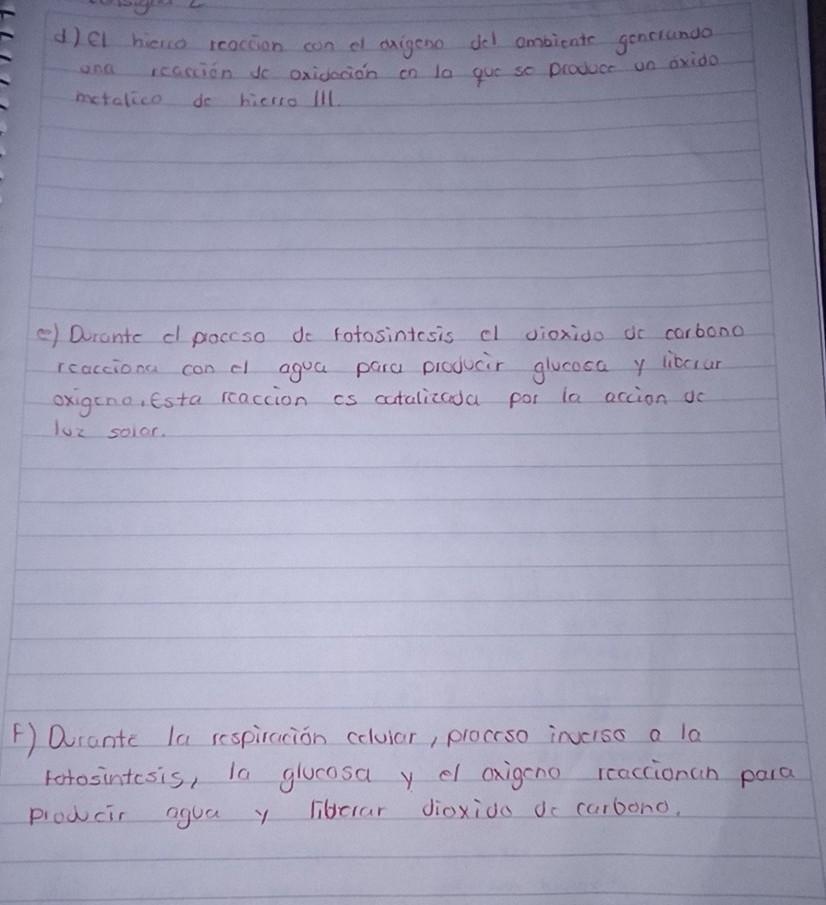 d) El hierro reaccion con el oxigeno del ambiente generando
una reacción de oxidación en la que se produce un óxido
metalico de hierro III.
e) Durante el proceso de fotosintesis el dioxido de carbono
reacciona con el agua para producir glucosa y liberar
oxigeno. Esta reaccion es catalizada por la accion de
luz solar.
F) Durante la respiración celular, proceso inverso a la
fotosintesis, la glucosa y el oxigeno reaccionan para
producir agua y liberar dioxido de carbono.